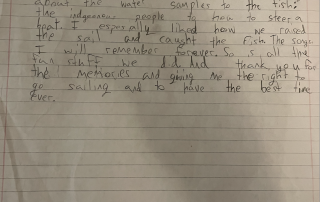 about the water samples to the fish.
The indgeneas people to how to steer a
boat. I especially liked how we raised
the sail and caught the fish. The songs
I will remember forever. So is all the
fun stuff we did And thank you for
the memories and giving me the right to
go sailing and to have the best time
ever.